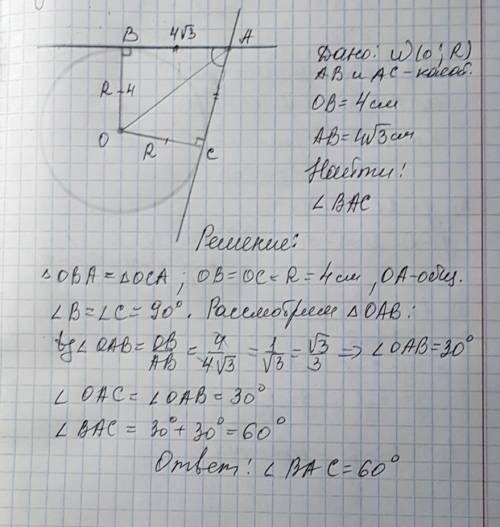 B 4√3 A
R 4
O
R C
Дано: ω(O; R)
AB и AC - касат.
OB = 4 см
AB = 4√3 см
Найти:
∠BAC
Решение:
△OBA = △OCA; OB = OC = R = 4 см, OA - общ.
∠B = ∠C = 90°. Рассмотрим △OAB:
tg∠OAB = OB/AB = 4/4√3 = 1/√3 = √3/3 ⇒ ∠OAB = 30°
∠OAC = ∠OAB = 30°
∠BAC = 30° + 30° = 60°
Ответ: ∠BAC = 60°